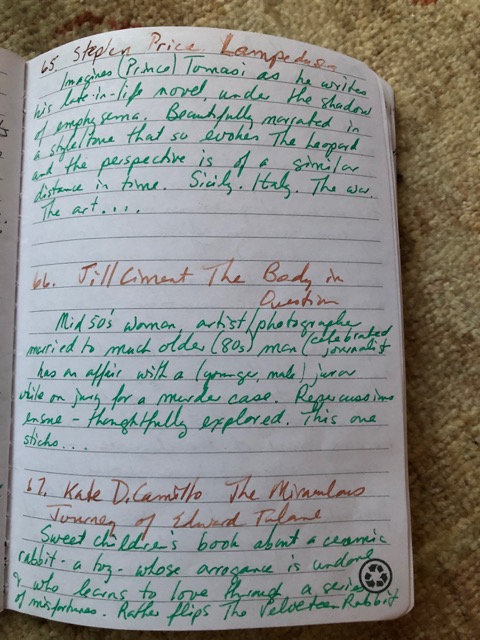 65 Stephen Price Lampedusa
Imagines (Prince) Tomasi as he writes
his late-in-life novel, under the shadow
of emphysema. Beautifully narrated in
a style/tone that so evokes The Leopard
and the perspective is of a similar
distance in time. Sicily. Italy. The war.
The art....
66. Jill Ciment The Body in
Question
Mid 50's woman, artist/photographer
married to much older (80s) man (celebrated
journalist
has an affair with a (younger, male) juror
while on jury for a murder case. Repercussions
ensue - thoughtfully explored. This one
sticks...
67. Kate DiCamillo The Miraculous
Journey of Edward Tulane
Sweet children's book about a ceramic
rabbit - a toy - whose arrogance is undone
& who learns to love through a series
of misfortunes. Rather flips The Velveteen Rabbit